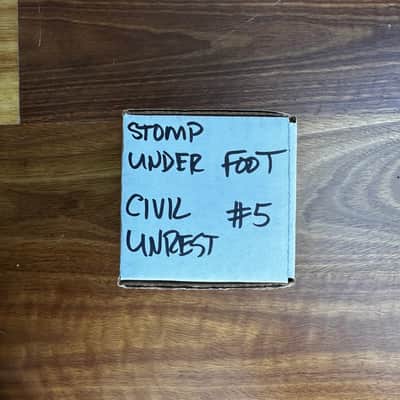 STOMP
UNDER FOOT
CIVIL #5
UNREST